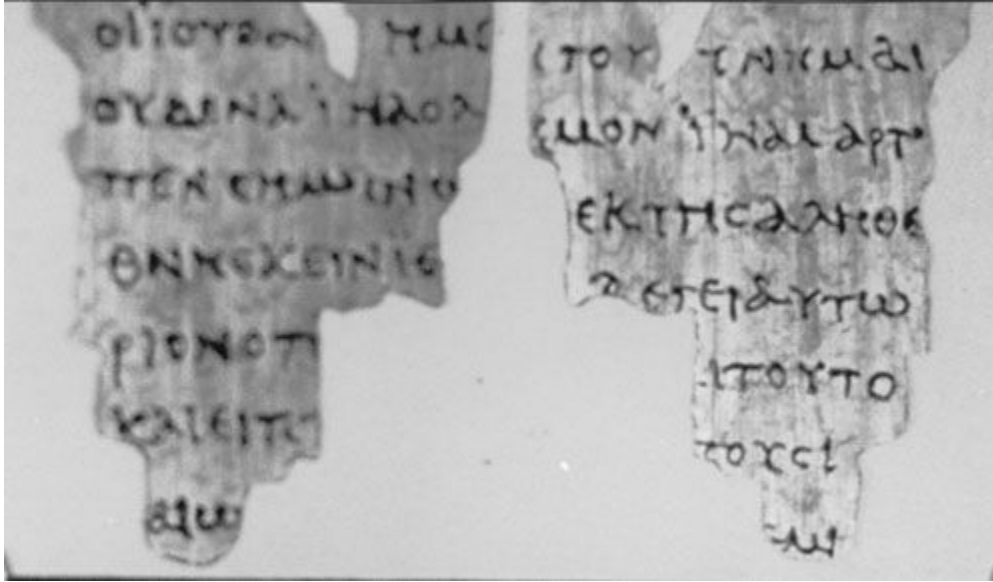 ΟΙ ΙΟΥΔΑΙ ΗΜΕ
ΟΥΔΕΝΑ ΙΝΑ Ο Λ
ΠΕΝ ΣΗΜΑΙΝΩ
ΘΝΗΣΚΕΙΝ ΙΣ
ΡΙΟΝ Ο Π
ΚΑΙ ΕΙΠ
ΑΙΩ
ΤΟΥΤΟ ΓΕΓΕΝΝΗΜΑΙ
ΣΜΟΝ ΙΝΑ ΜΑΡΤΥ
ΕΚ ΤΗΣ ΑΛΗΘΕ
ΛΕΓΕΙ ΑΥΤΩ
Ι ΤΟΥΤΟ
ΤΟΥΣ Ι
ΜΙ